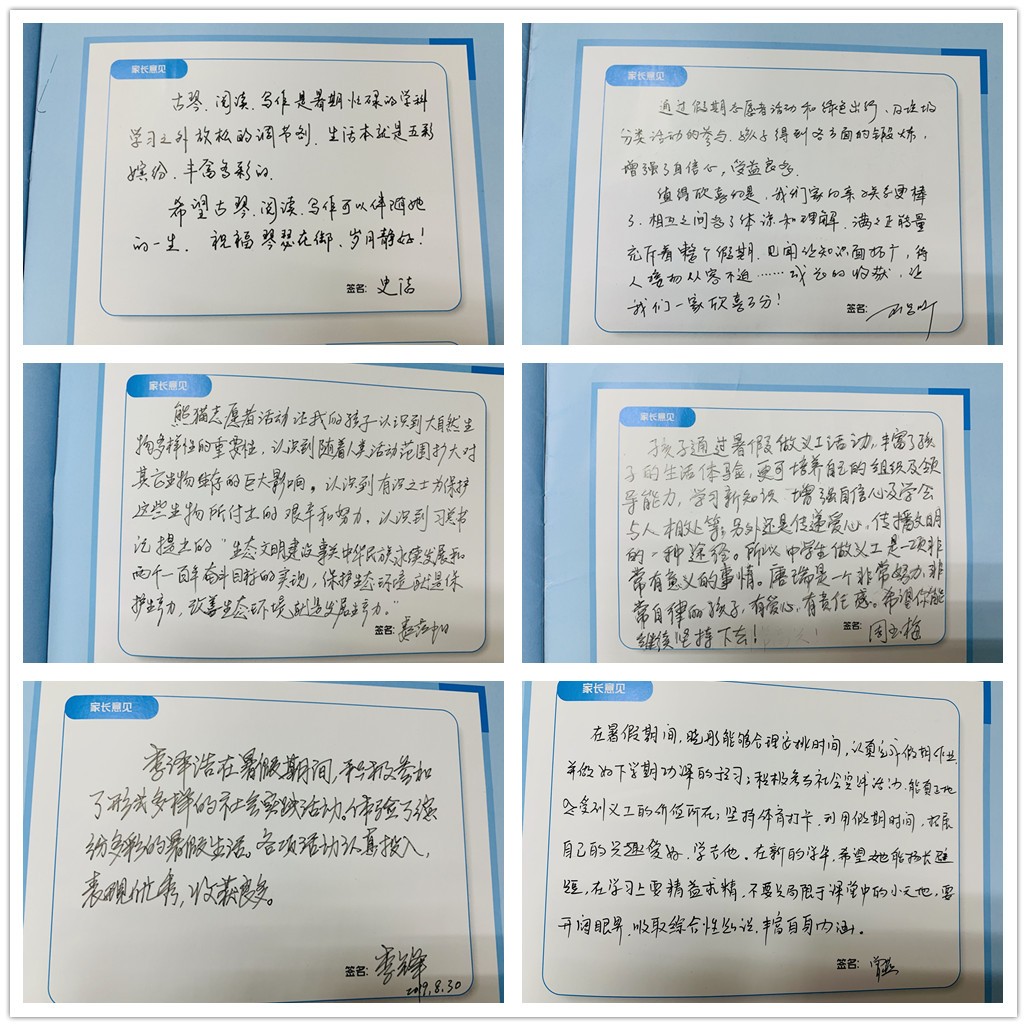 家长意见
古琴、阅读、写作是暑期忙碌的学科
学习之外放松的调节剂。生活本就是五彩
缤纷、丰富多彩的。
希望古琴、阅读、写作可以伴随她
的一生。祝福琴瑟在御、岁月静好！
签名：史洁
家长意见
通过假期志愿者活动和绿色出行、垃圾
分类活动的参与，孩子得到各方面的锻炼，
增强了自信心，受益良多。
值得欣喜的是，我们家的亲子关系更棒
了，相互之间多了体谅和理解，满满正能量
充斥着整个假期。见闻让知识面拓广，待
人接物从容不迫……的收获，让
我们一家欣喜万分！
签名：
家长意见
熊猫志愿者活动让我的孩子认识到大自然生
物多样性的重要性，认识到随着人类活动范围扩大对
其它生物生存的巨大影响。认识到有识之士为保护
这些生物所付出的艰辛和努力，认识到习总书
记提出的“生态文明建设事关中华民族永续发展和
两个一百年奋斗目标的实现，保护生态环境就是保
护生产力，改善生态环境就是发展生产力。”
签名：
家长意见
孩子通过暑假做义工活动，丰富了孩
子的生活体验，更可培养自己的组织及领
导能力，学习新知识 增强自信心及学会
与人相处等，另外还是传递爱心，传播文明
的一种途径。所以中学生做义工是一项非
常有意义的事情。唐瑞是一个非常努力，非
常自律的孩子，有爱心，有责任感。希望你能
继续坚持下去！
签名：周玉梅
家长意见
李泽浩在暑假期间，积极参加
了形式多样的社会实践活动。体验了缤
纷多彩的暑假生活。各项活动认真投入，
表现优秀，收获良多。
签名：李锋
2019.8.30
家长意见
在暑假期间，晓彤能够合理安排时间，认真完成假期作业
并做好下学期功课的预习；积极参与社会实践活动，能真正地
感受到义工的价值所在；坚持体育打卡，利用假期时间，拓展
自己的兴趣爱好，学吉他。在新的学年，希望她能扬长避
短，在学习上要精益求精，不要只局限于课堂中的小天地，要
开阔眼界，吸取综合性知识，丰富自身内涵。
签名：